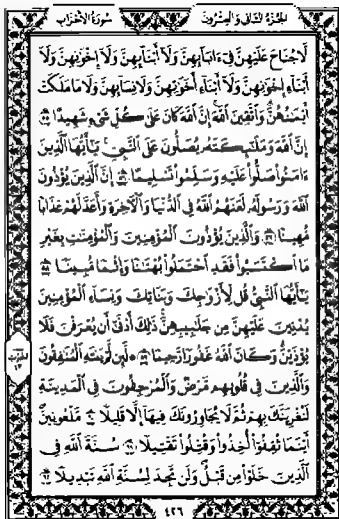 الجزء الثاني والعشرون سورة الأحزاب
لَّا جُنَاحَ عَلَيْهِنَّ فِىٓ ءَابَآئِهِنَّ وَلَآ أَبْنَآئِهِنَّ وَلَآ إِخْوَٰنِهِنَّ وَلَآ
أَبْنَآءِ إِخْوَٰنِهِنَّ وَلَآ أَبْنَآءِ أَخَوَٰتِهِنَّ وَلَا نِسَآئِهِنَّ وَلَا مَا مَلَكَتْ
أَيْمَٰنُهُنَّ وَٱتَّقِينَ ٱللَّهَ إِنَّ ٱللَّهَ كَانَ عَلَىٰ كُلِّ شَىْءٍ شَهِيدًا ٥٥
إِنَّ ٱللَّهَ وَمَلَٰٓئِكَتَهُۥ يُصَلُّونَ عَلَى ٱلنَّبِىِّ يَٰٓأَيُّهَا ٱلَّذِينَ
ءَامَنُوا۟ صَلُّوا۟ عَلَيْهِ وَسَلِّمُوا۟ تَسْلِيمًا ٥٦ إِنَّ ٱلَّذِينَ يُؤْذُونَ
ٱللَّهَ وَرَسُولَهُۥ لَعَنَهُمُ ٱللَّهُ فِى ٱلدُّنْيَا وَٱلْءَاخِرَةِ وَأَعَدَّ لَهُمْ عَذَابًا
مُّهِينًا ٥٧ وَٱلَّذِينَ يُؤْذُونَ ٱلْمُؤْمِنِينَ وَٱلْمُؤْمِنَٰتِ بِغَيْرِ
مَا ٱكْتَسَبُوا۟ فَقَدِ ٱحْتَمَلُوا۟ بُهْتَٰنًا وَإِثْمًا مُّبِينًا ٥٨
يَٰٓأَيُّهَا ٱلنَّبِىُّ قُل لِّأَزْوَٰجِكَ وَبَنَاتِكَ وَنِسَآءِ ٱلْمُؤْمِنِينَ
يُدْنِينَ عَلَيْهِنَّ مِن جَلَٰبِيبِهِنَّ ذَٰلِكَ أَدْنَىٰٓ أَن يُعْرَفْنَ فَلَا
يُؤْذَيْنَ وَكَانَ ٱللَّهُ غَفُورًا رَّحِيمًا ٥٩ ۞ لَّئِن لَّمْ يَنتَهِ ٱلْمُنَٰفِقُونَ
وَٱلَّذِينَ فِى قُلُوبِهِم مَّرَضٌ وَٱلْمُرْجِفُونَ فِى ٱلْمَدِينَةِ
لَنُغْرِيَنَّكَ بِهِمْ ثُمَّ لَا يُجَاوِرُونَكَ فِيهَآ إِلَّا قَلِيلًا ٦٠ مَّلْعُونِينَ
أَيْنَمَا ثُقِفُوٓا۟ أُخِذُوا۟ وَقُتِّلُوا۟ تَقْتِيلًا ٦١ سُنَّةَ ٱللَّهِ فِى
ٱلَّذِينَ خَلَوْا۟ مِن قَبْلُ وَلَن تَجِدَ لِسُنَّةِ ٱللَّهِ تَبْدِيلًا ٦٢
٤٢٦